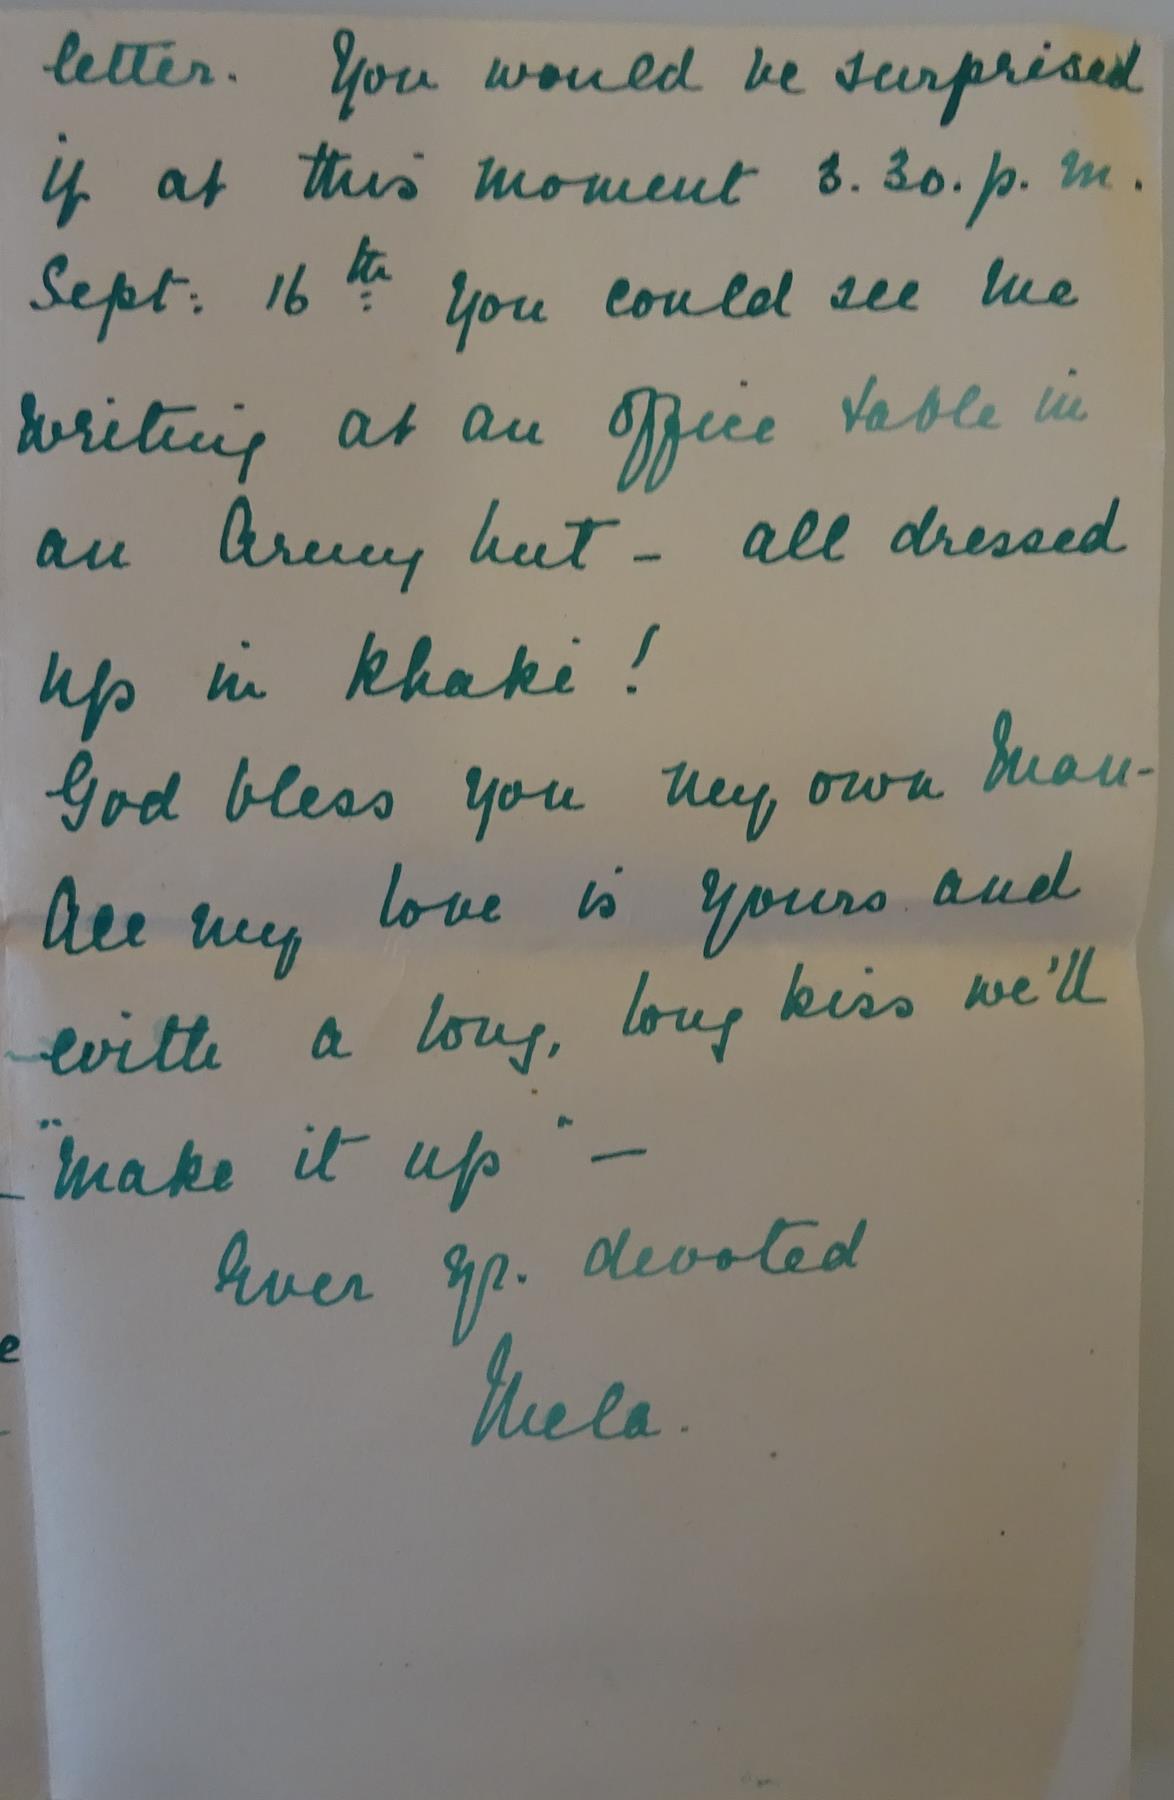 letter. You would be surprised
if at this moment 3.30.p.m.
Sept: 16th you could see me
writing at an office table in
an Army hut - all dressed
up in khaki!
God bless you my own Man-
All my love is yours and
with a long, long kiss we'll
"make it up" —
Ever yr. devoted
Mela.